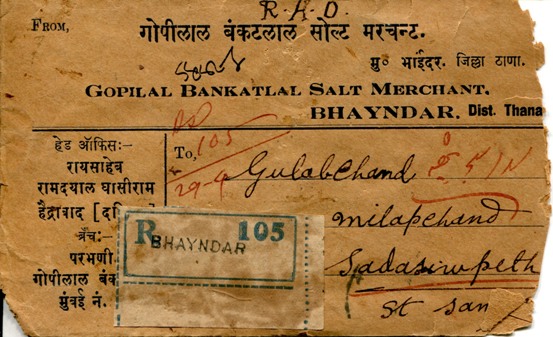 R.A.D.
FROM,
गोपीलाल बंकटलाल सोल्ट मरचन्ट.
मु॰ भाईंदर. जिल्हा ठाणा.
GOPILAL BANKATLAL SALT MERCHANT.
BHAYNDAR. Dist. Thana
हेड ऑफिस:-
रायसाहेब
रामदयाल घासीराम
हैद्राबाद [द
ब्रँच:-
परभणी
गोपीलाल बंक
मुंबई नं.
To,
105
29-4
Gulabchand
milapchand
Sadasivpeth
St San
R 105
BHAYNDAR